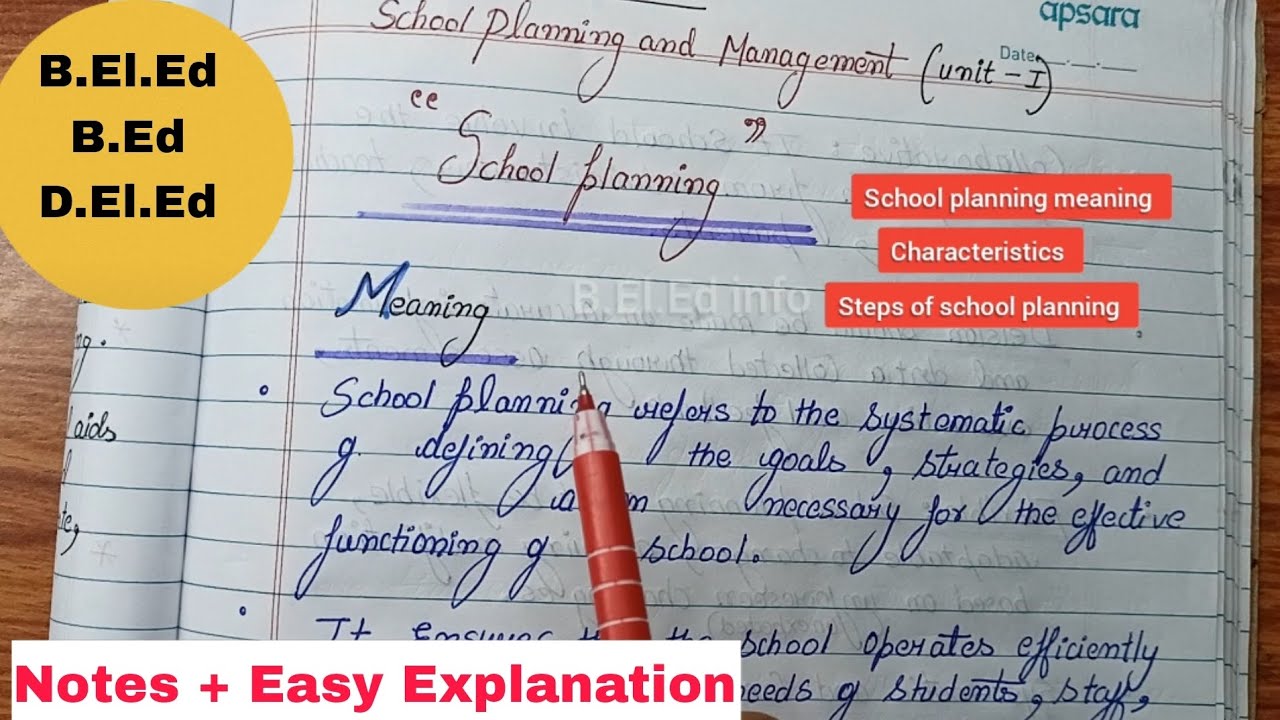 apsara
School planning and Management (unit - I)
Date
B.El.Ed
B.Ed
D.El.Ed
"School planning"
School planning meaning
Characteristics
Steps of school planning
B.El.Ed info
Meaning
• School planning refers to the systematic process
of defining the goals, strategies, and
necessary for the effective
functioning of school.
• It ensures the school operates efficiently
needs of students, staff,
aids
Notes + Easy Explanation